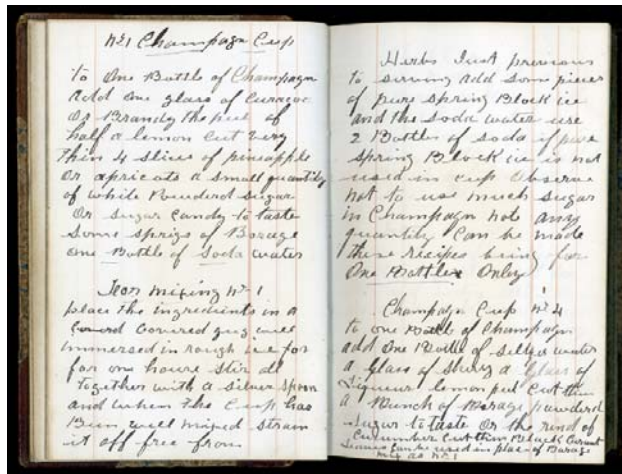 No 1 Champagn Cup
To One Bottle of Champagn
Add one glass of Curacoa
Or Brandy the peel of
half a lemon cut very
thin 4 slices of pineapple
Or apricots a small quantity
of white Powderd sugar
Or sugar candy to taste
Some sprigs of Borage
One Bottle of Soda water
For mixing No 1
place the ingredients in a
Covered jug well
immersed in rough ice for
for one houre stir all
together with a silver spoon
and when the Cup has
Bin well mixed strain
it off free from
Herbs Just previous
to serving add some pieces
of pure spring Block ice
and the soda water use
2 Bottles of soda if pure
spring Block ice is not
used in cup Observe
not to use much sugar
in Champagn note any
quantity Can be made
these recipes being for
One Bottle Only
Champagn Cup No 4
to one Bottle of Champagn
add One Bottle of seltzer water
a Glass of sherry a Glass of
Liqueur lemon peel Cut thin
a Bunch of Borage powderd
sugar to taste or the rind of
Cucumber Cut thin Black Currant
Leaves can be used in place of Borage
mix as No 1